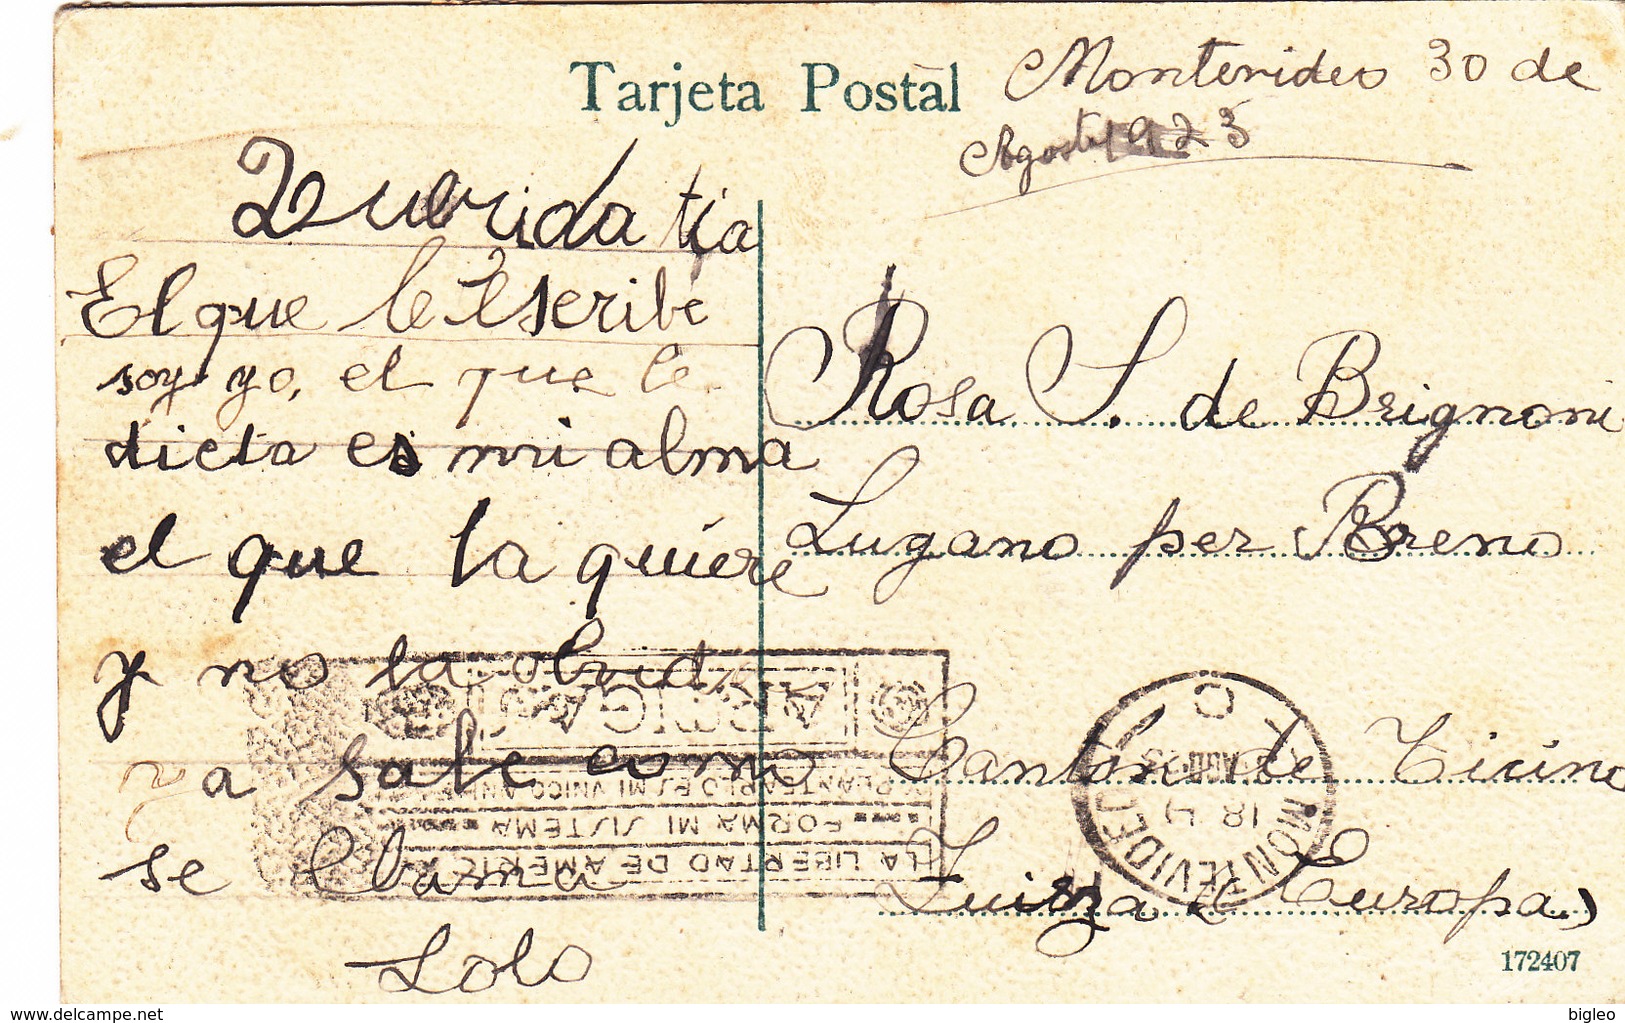 Tarjeta Postal
Montevideo 30 de
Agosto 1923
Querida tia
El que le Escribe
soy yo, el que le
dicta es mi alma
el que la quiere
y no la olvida
ya sabe como
se llama
Lolo
Rosa S. de Brignoni
Lugano per Breno
Cantón de Ticino
Suiza (Europa)
ARTIGAS
PLANTEARLO ES MI UNICO AN
FORMA MI SISTEMA
LA LIBERTAD DE AMERICA
MONTEVIDEO
18
172407
delcampe.net
bigleo